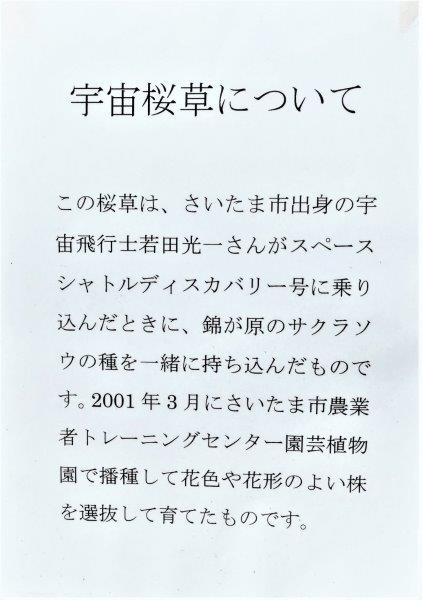 宇宙桜草について
この桜草は、さいたま市出身の宇
宙飛行士若田光一さんがスペース
シャトルディスカバリー号に乗り
込んだときに、錦が原のサクラソ
ウの種を一緒に持ち込んだもので
す。2001 年 3 月にさいたま市農業
者トレーニングセンター園芸植物
園で播種して花色や花形のよい株
を選抜して育てたものです。